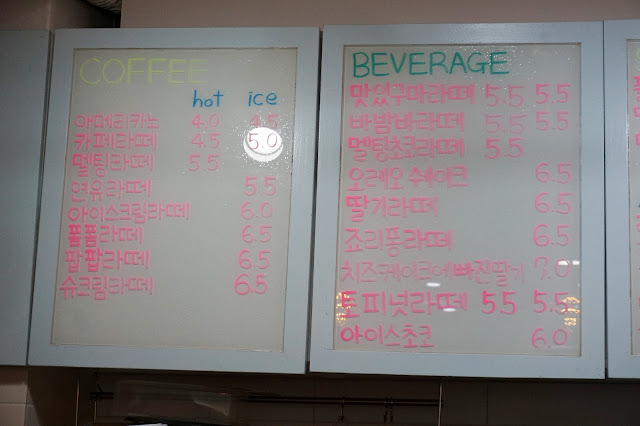 COFFEE
hot ice
아메리카노 4.0 4.5
카페라떼 4.5 5.0
멜팅라떼 5.5
연유라떼 5.5
아이스크림라떼 6.0
폼폼라떼 6.5
팝팝라떼 6.5
슈크림라떼 6.5
BEVERAGE
맛있구마라떼 5.5 5.5
바밤바라떼 5.5 5.5
멜팅초코라떼 5.5
오레오 쉐이크 6.5
딸기라떼 6.5
죠리퐁라떼 6.5
치즈케이크에빠진딸기 7.0
토피넛라떼 5.5 5.5
아이스초코 6.0